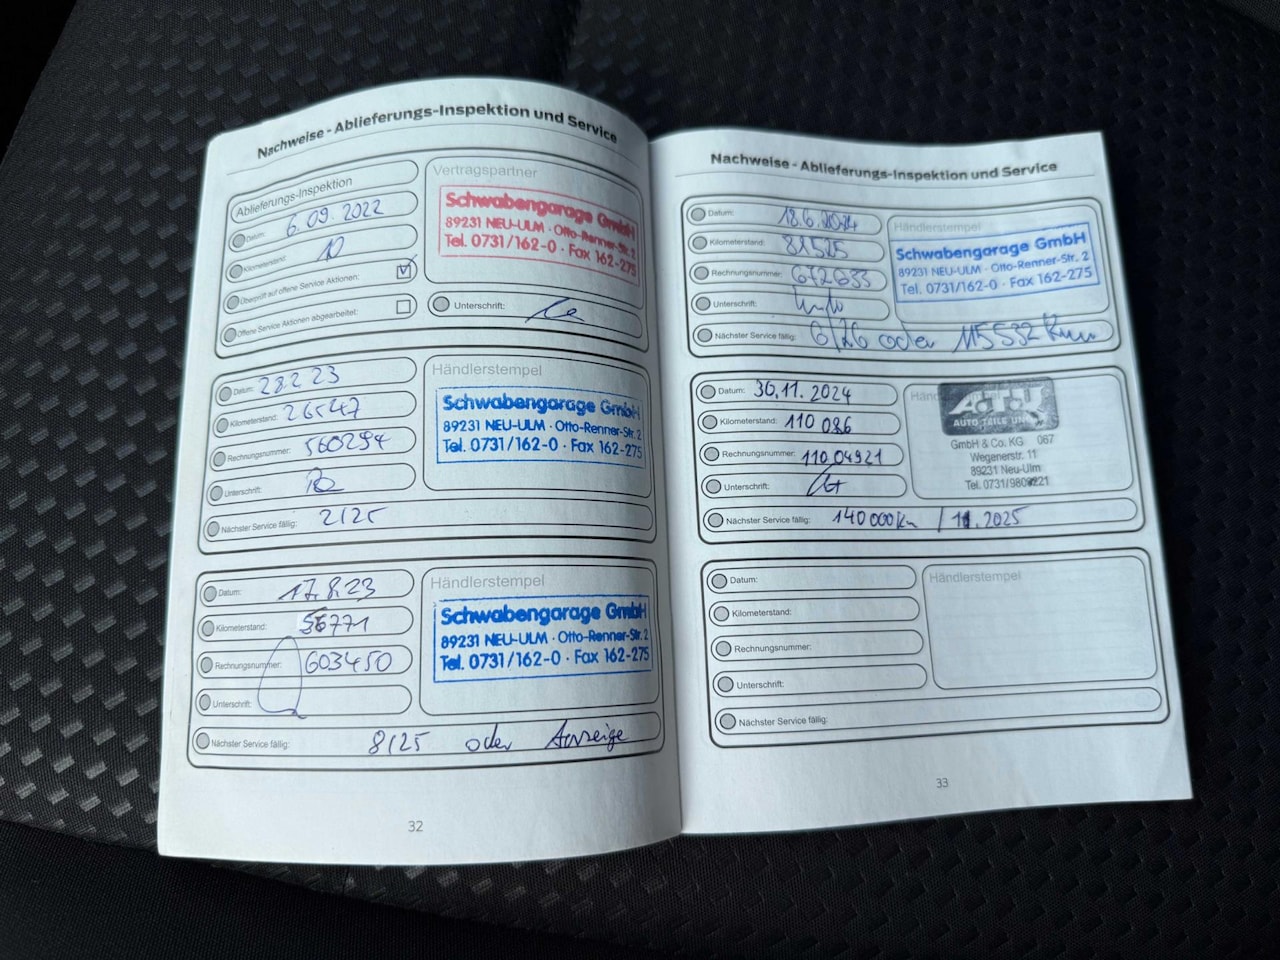 Nachweise - Ablieferungs-Inspektion und Service
Ablieferungs-Inspektion
Datum: 6.09.2022
Kilometerstand: 10
Überprüft auf offene Service Aktionen:
Offene Service Aktionen abgearbeitet:
Vertragspartner
Schwabengarage GmbH
89231 NEU-ULM · Otto-Renner-Str. 2
Tel. 0731/162-0 · Fax 162-275
Unterschrift:
Datum: 28.2.23
Kilometerstand: 26547
Rechnungsnummer: 560294
Unterschrift:
Nächster Service fällig: 2125
Händlerstempel
Schwabengarage GmbH
89231 NEU-ULM · Otto-Renner-Str. 2
Tel. 0731/162-0 · Fax 162-275
Datum: 17.8.23
Kilometerstand: 56771
Rechnungsnummer: 603450
Unterschrift:
Nächster Service fällig: 8125 oder Anzeige
Händlerstempel
Schwabengarage GmbH
89231 NEU-ULM · Otto-Renner-Str. 2
Tel. 0731/162-0 · Fax 162-275
32
Nachweise - Ablieferungs-Inspektion und Service
Datum: 18.6.2024
Kilometerstand: 81525
Rechnungsnummer: 672633
Unterschrift:
Nächster Service fällig: 6/26 oder 115532 Km
Händlerstempel
Schwabengarage GmbH
89231 NEU-ULM · Otto-Renner-Str. 2
Tel. 0731/162-0 · Fax 162-275
Datum: 30.11.2024
Kilometerstand: 110 086
Rechnungsnummer: 11004921
Unterschrift:
Nächster Service fällig: 140 000 Km / 11.2025
AUTO TEILE UN
GmbH & Co. KG 067
Wegenerstr. 11
89231 Neu-Ulm
Datum:
Kilometerstand:
Rechnungsnummer:
Unterschrift:
Nächster Service fällig:
Händlerstempel
33